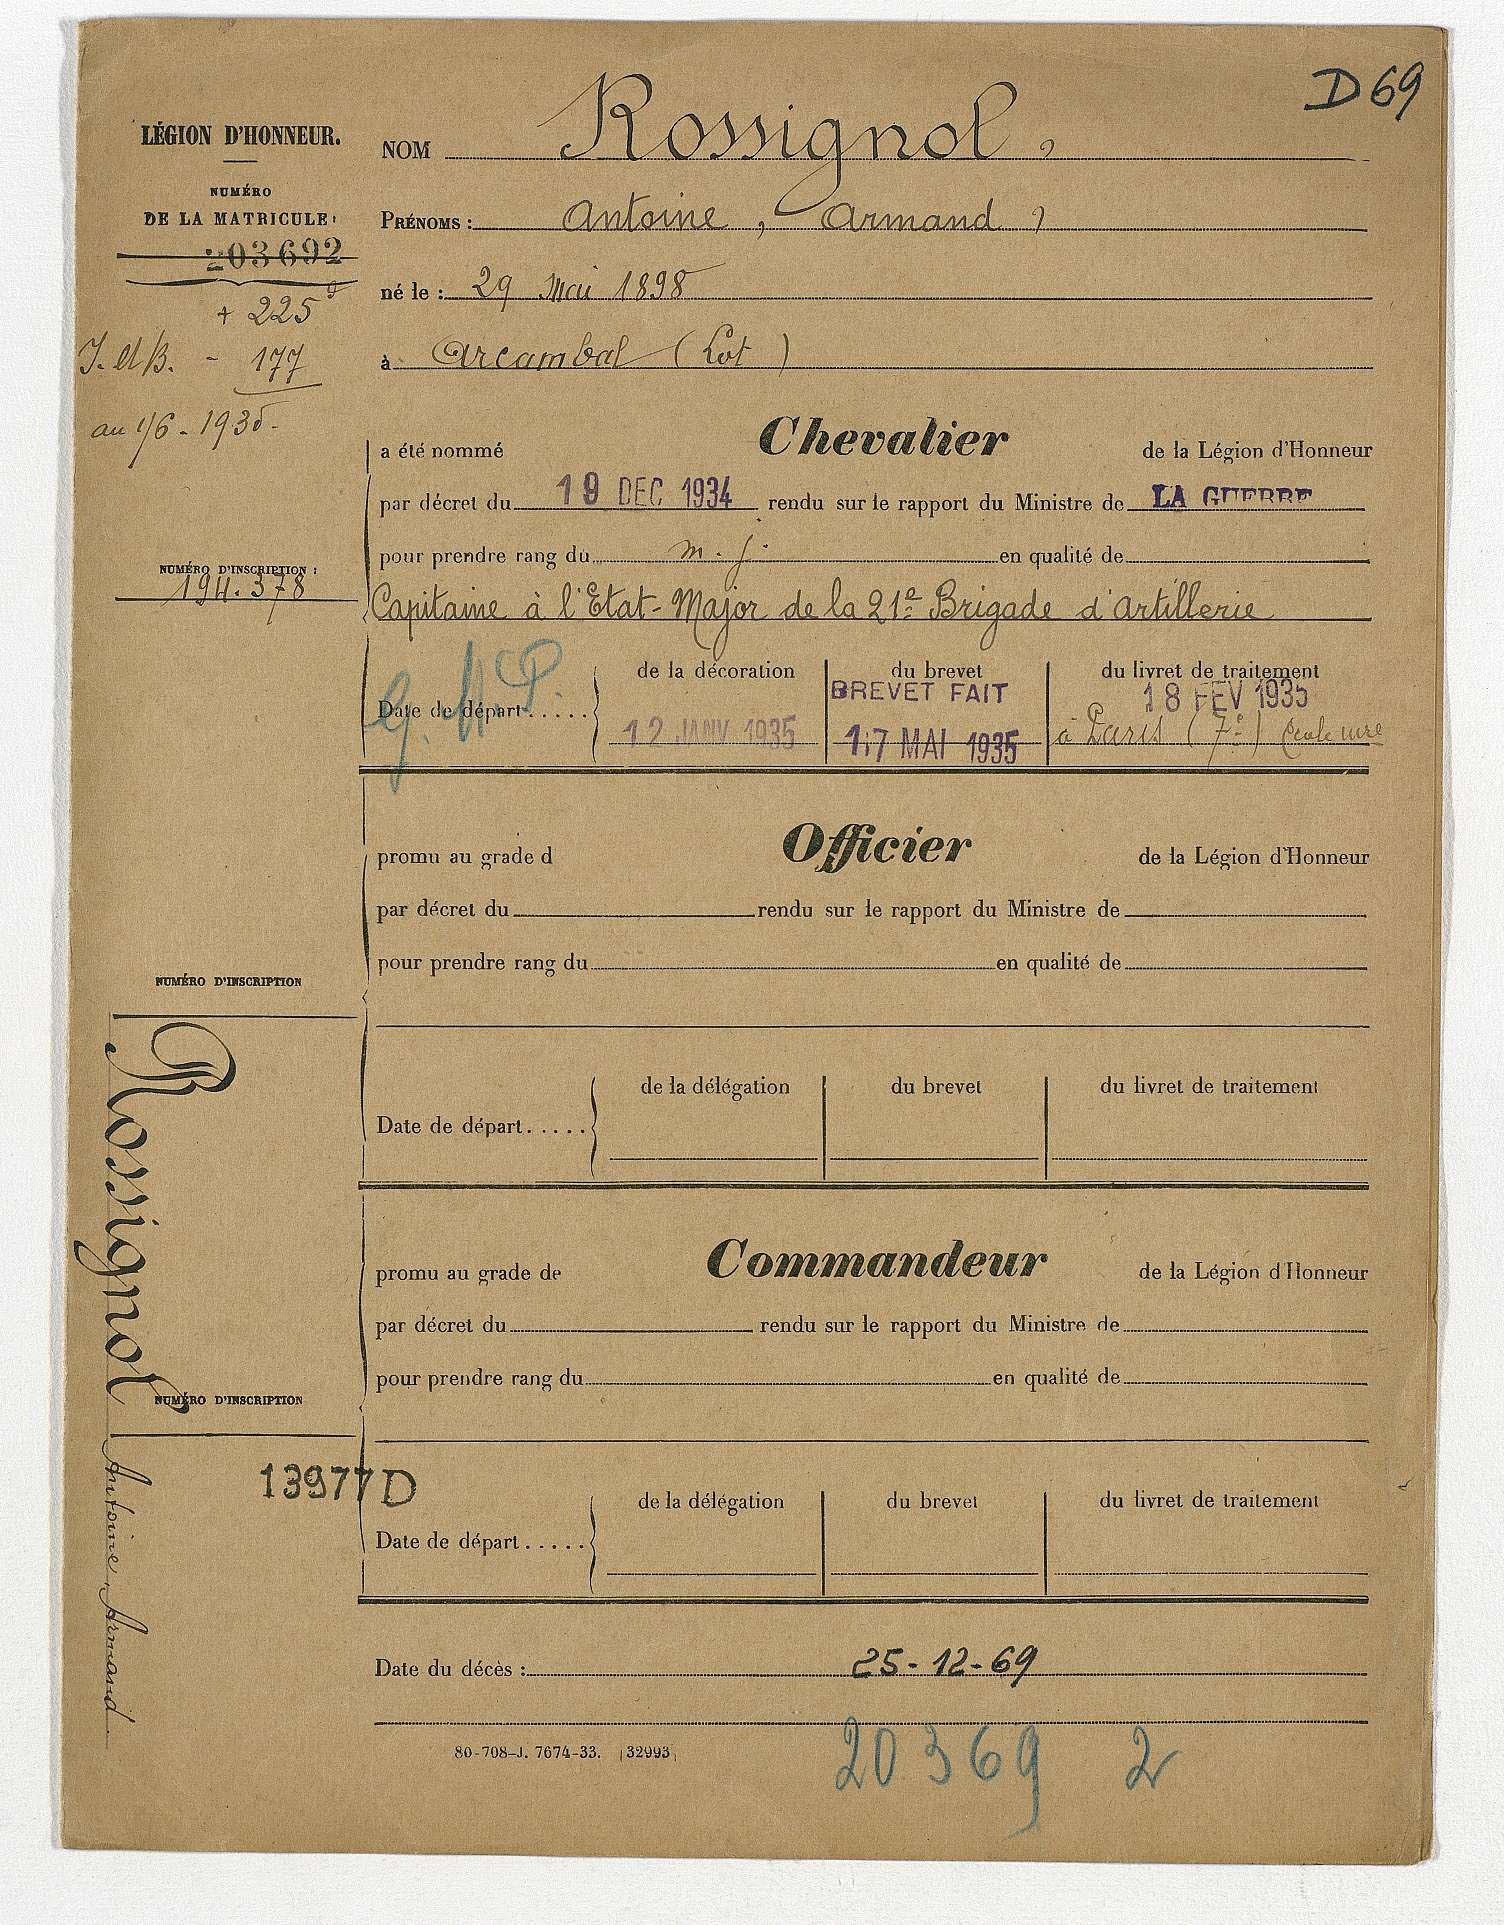 D 69
LÉGION D'HONNEUR.
NUMÉRO
DE LA MATRICULE:
203692
+ 225
- 177
au 1/6 - 1935 -
NOM Rossignol,
PRÉNOMS : Antoine, Armand,
né le : 29 Mai 1898
à Arcambal (Lot)
a été nommé Chevalier de la Légion d'Honneur
par décret du 19 DEC 1934 rendu sur le rapport du Ministre de LA GUERRE
pour prendre rang du m. j. en qualité de
NUMÉRO D'INSCRIPTION :
194.378
Capitaine à l'Etat-Major de la 21e Brigade d'Artillerie
de la décoration du brevet du livret de traitement
BREVET FAIT 18 FEV 1935
Date de départ..... 12 JANV 1935 17 MAI 1935 à Paris (7e) Ecole
promu au grade d Officier de la Légion d'Honneur
par décret du rendu sur le rapport du Ministre de
pour prendre rang du en qualité de
NUMÉRO D'INSCRIPTION
de la délégation du brevet du livret de traitement
Date de départ.....
promu au grade de Commandeur de la Légion d'Honneur
par décret du rendu sur le rapport du Ministre de
pour prendre rang du en qualité de
NUMÉRO D'INSCRIPTION
13977 D
de la délégation du brevet du livret de traitement
Date de départ.....
Rossignol Antoine, Armand
Date du décès : 25-12-69
80-708-J. 7674-33. (32993)
20369 2